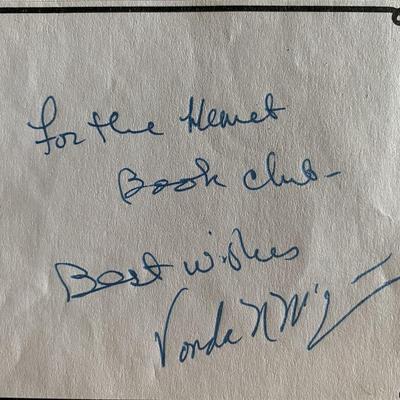 For the Hemet
Book Club-
Best wishes
Vonda N